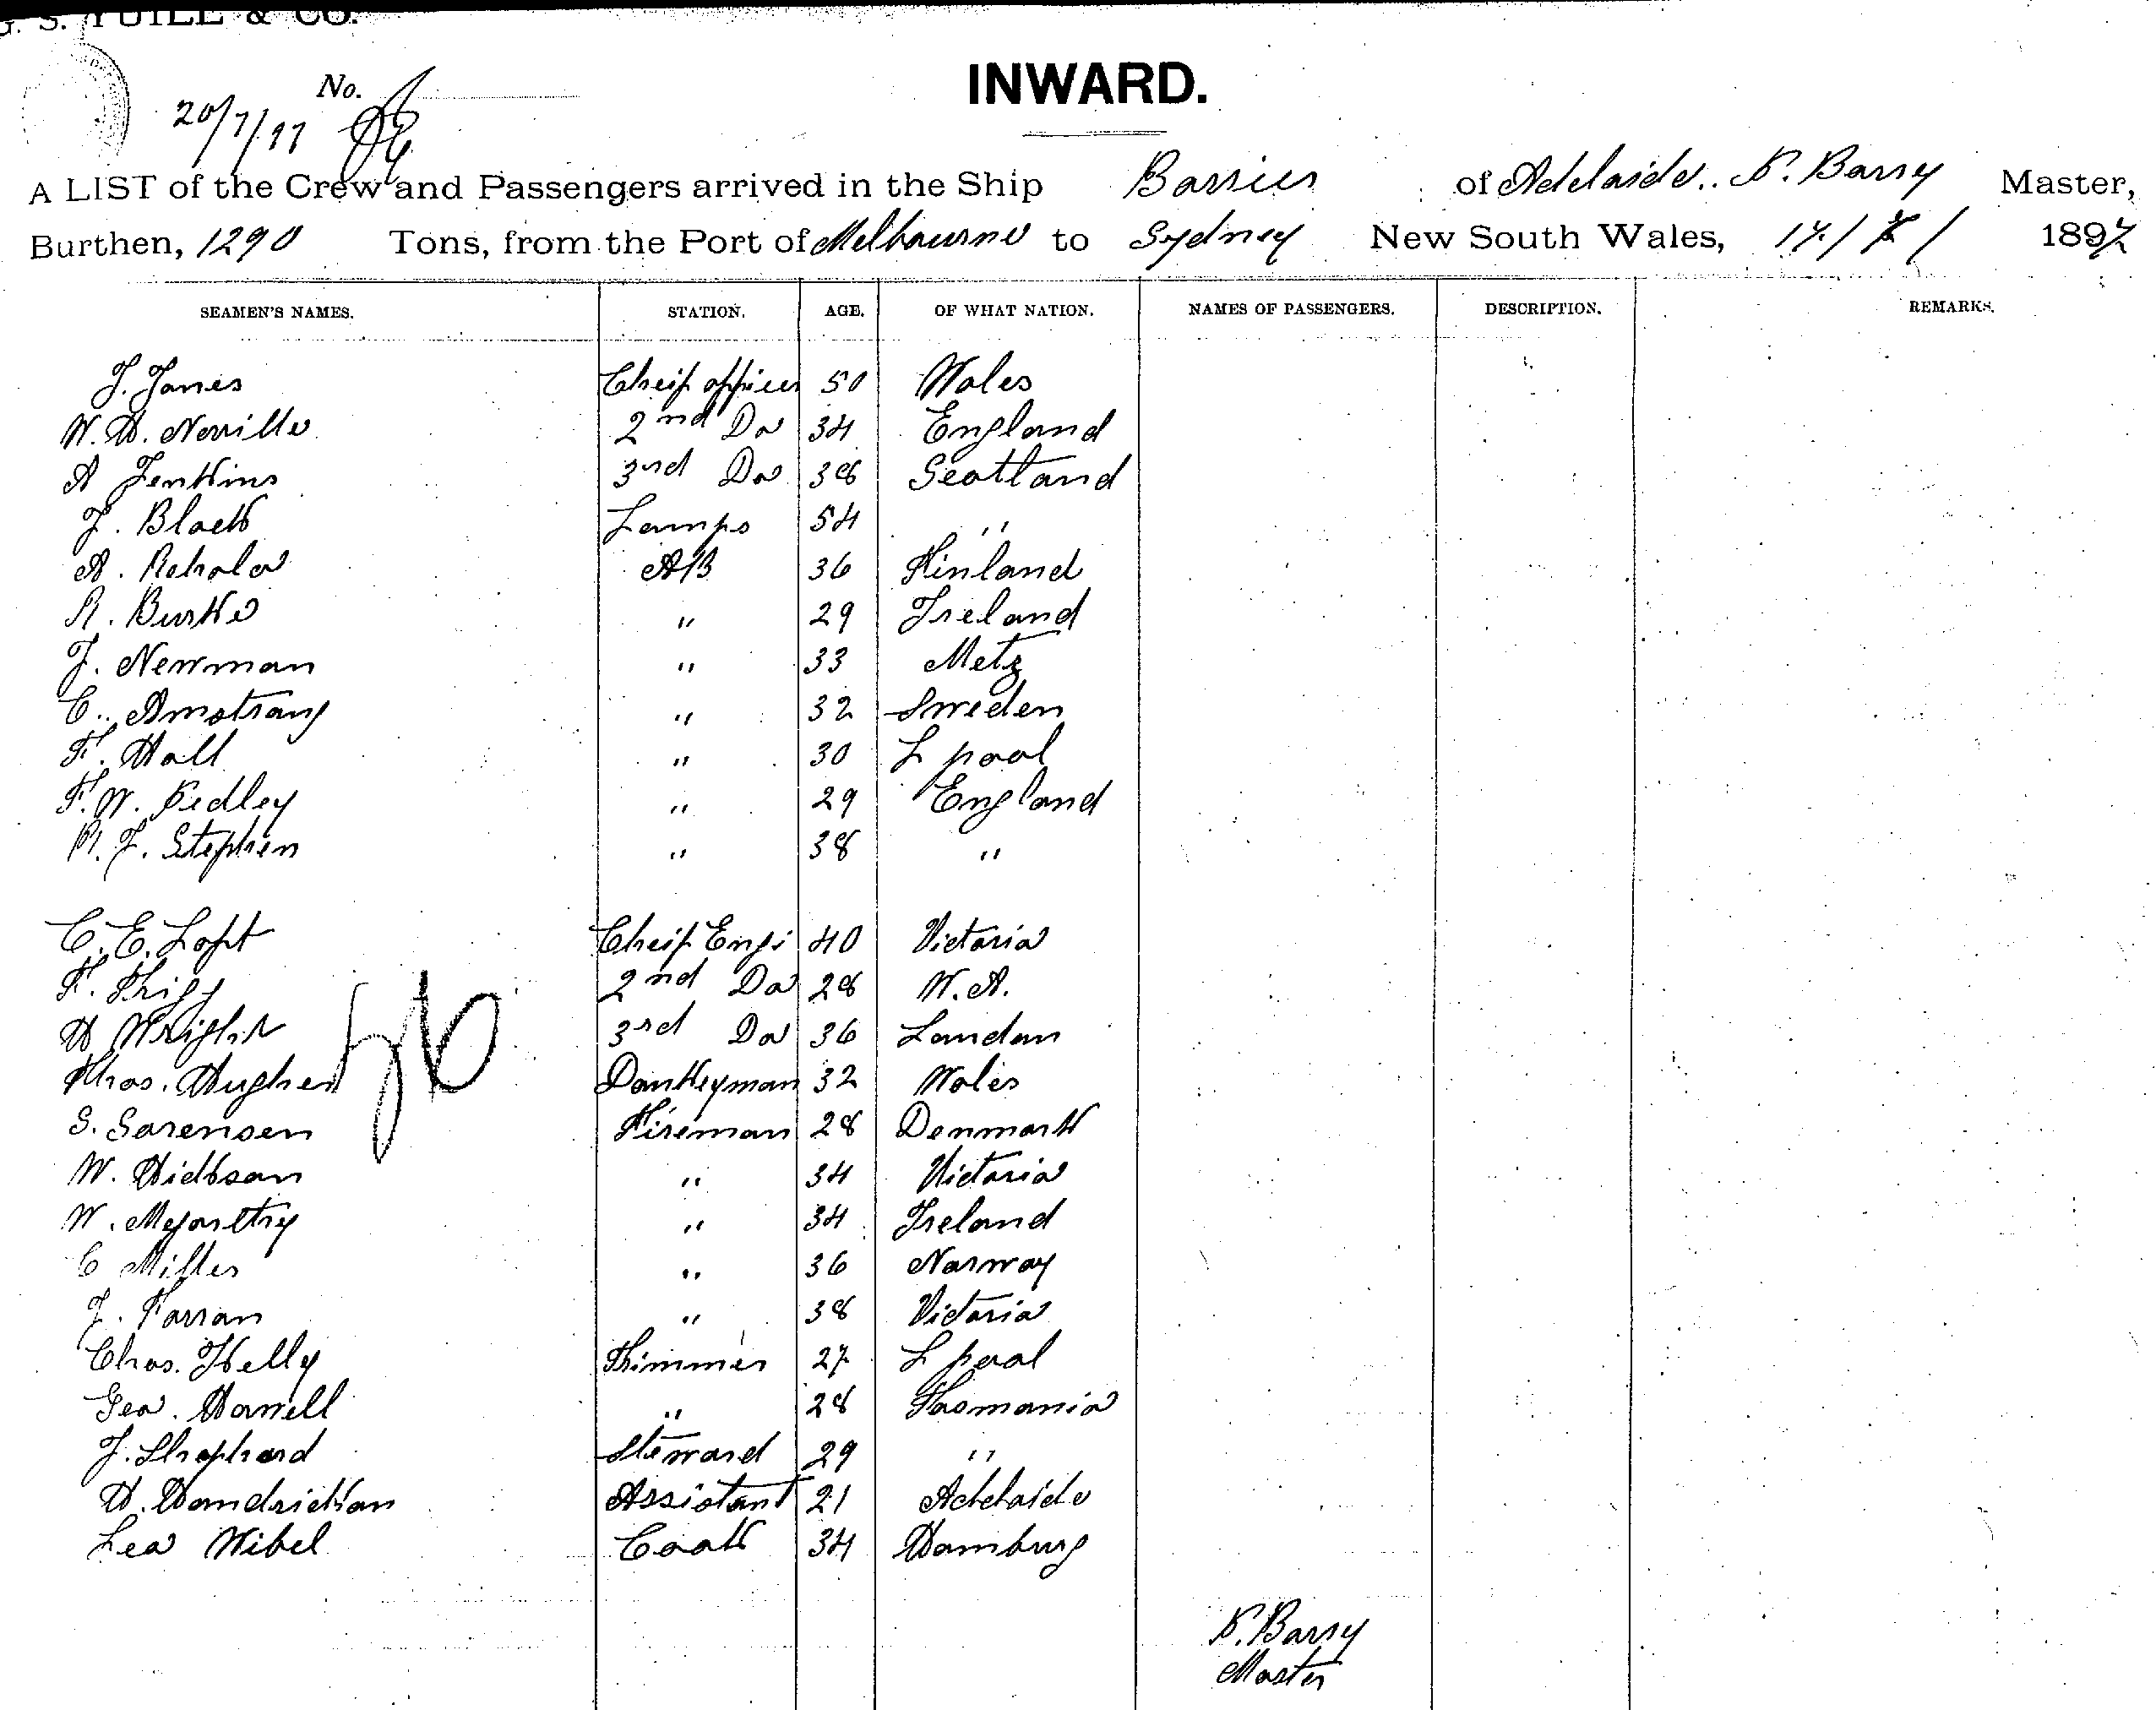 G. S. YUILL & CO.
No.
20/7/97
INWARD.
A LIST of the Crew and Passengers arrived in the Ship Barrier of Adelaide. P. Barry Master,
Burthen, 1290 Tons, from the Port of Melbourne to Sydney New South Wales, 17/7/ 1897
SEAMEN'S NAMES. STATION. AGE. OF WHAT NATION. NAMES OF PASSENGERS. DESCRIPTION. REMARKS.
J. Jones Cheif officer 50 Wales
W. H. Neville 2nd Do 34 England
A Jenkins 3rd Do 38 Scotland
J. Black Lamps 54 "
A. Rehola AB 36 Finland
R. Burke " 29 Ireland
J. Newman " 33 Metz
C. Amstrong " 32 Sweden
F. Hall " 30 L pool
F. W. Pedley " 29 England
R. J. Stephen " 38 "
C. E. Loft Cheif Engi 40 Victoria
F. Trigg 2nd Do 28 W. A.
H Wright 3rd Do 36 London
Thos. Hughes Donkeyman 32 Wales
S. Sorensen Fireman 28 Denmark
W. Hickson " 34 Victoria
W. Mcarthy " 34 Ireland
C Miller " 36 Norway
J. Farran " 38 Victoria
Chas. Kelly Trimmer 27 L pool
Geo. Howell " 28 Tasmania
J. Shephard Steward 29 "
H. Hendrickson Assistant 21 Adelaide
Leo Wibel Cook 34 Hamburg
P. Barry
Master